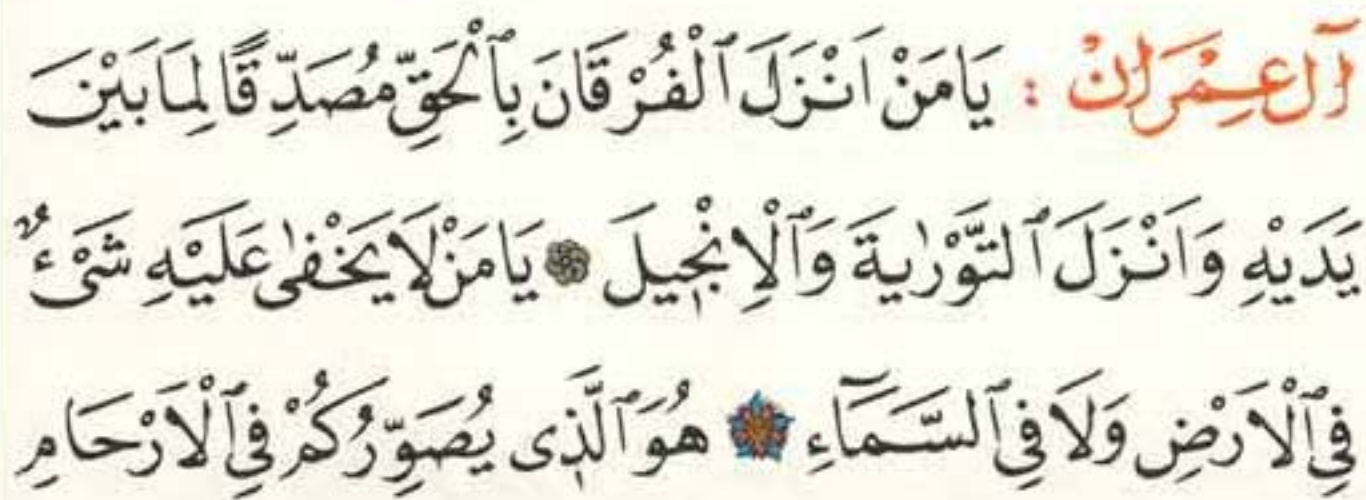 آلِ عِمْرَانْ : يَامَنْ اَنْزَلَ ٱلْفُرْقَانَ بِٱلْحَقِّ مُصَدِّقًا لِمَا بَيْنَ
يَدَيْهِ وَاَنْزَلَ ٱلتَّوْرٰيةَ وَٱلْاِنْجٖيلَ يَامَنْ لَا يَخْفٰى عَلَيْهِ شَيْءٌ
فِي ٱلْاَرْضِ وَلَا فِي ٱلسَّمَٓاءِ هُوَ ٱلَّذٖى يُصَوِّرُكُمْ فِي ٱلْاَرْحَامِ